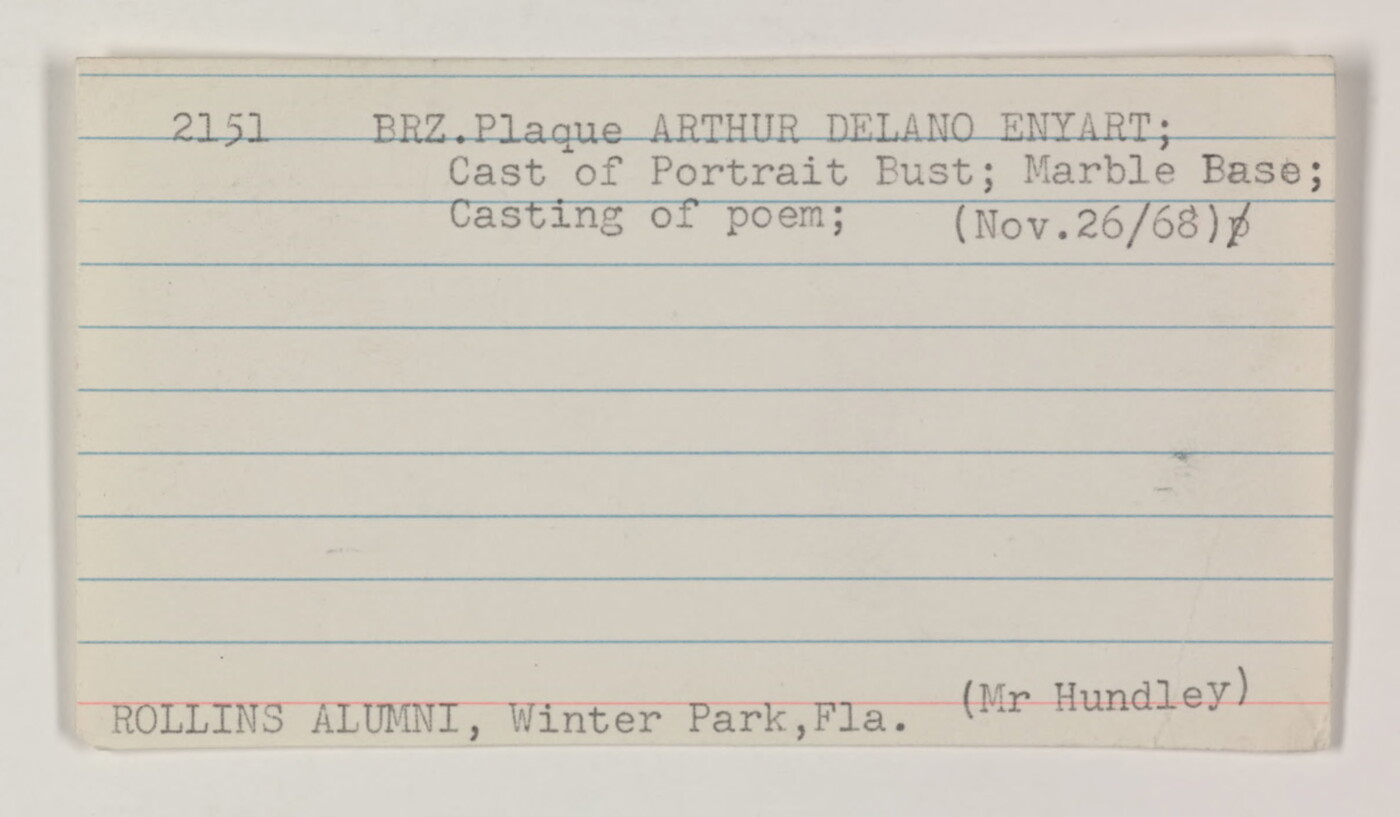 2151 BRZ.Plaque ARTHUR DELANO ENYART;
Cast of Portrait Bust; Marble Base;
Casting of poem; (Nov.26/68)
(Mr Hundley)
ROLLINS ALUMNI, Winter Park,Fla.